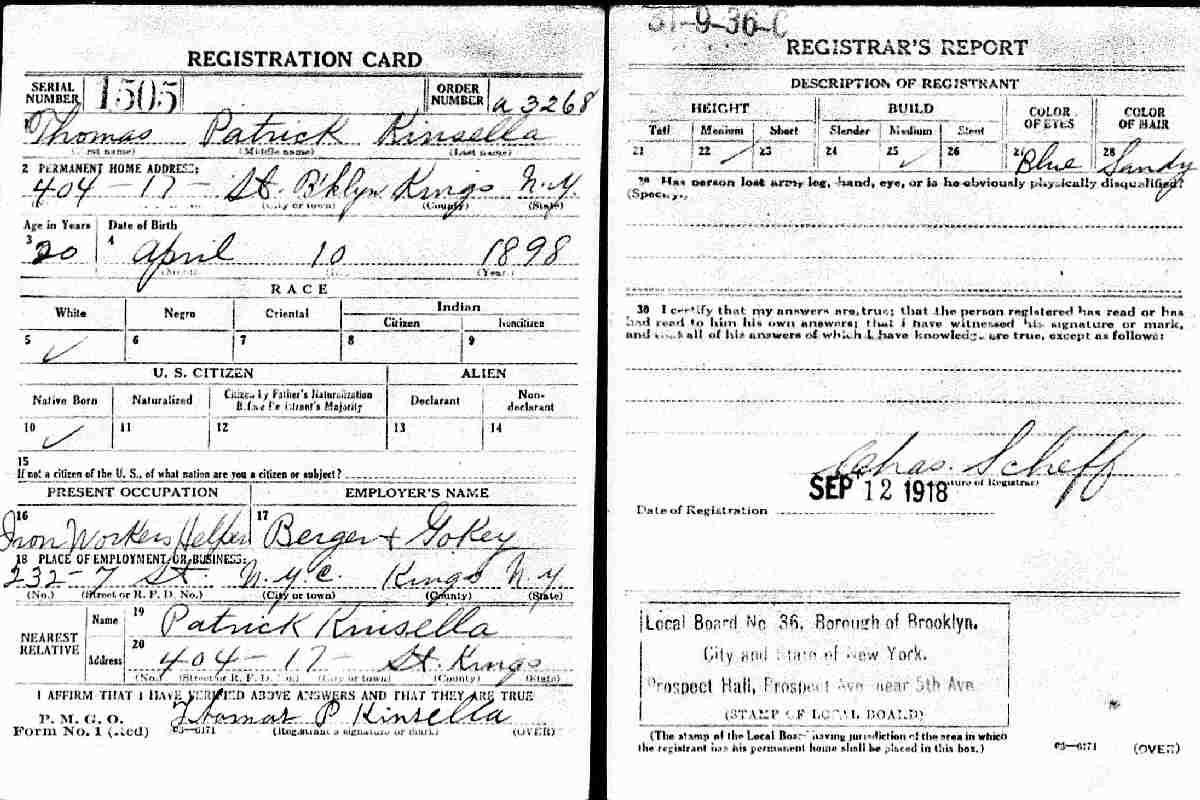 REGISTRATION CARD
SERIAL NUMBER 1505 ORDER NUMBER a 3268
Thomas Patrick Kinsella
(Middle name) (Last name)
2 PERMANENT HOME ADDRESS:
404 - 17 - St. B'klyn Kings N.Y.
(City or town) (County) (State)
Age in Years Date of Birth
3 20 4 April 10 1898
(Year)
RACE
White Negro Oriental Indian
Citizen Noncitizen
5 ✓ 6 7 8 9
U. S. CITIZEN ALIEN
Native Born Naturalized Citizen by Father's Naturalization Before Registrant's Majority Declarant Non-declarant
10 ✓ 11 12 13 14
15
If not a citizen of the U. S., of what nation are you a citizen or subject?
PRESENT OCCUPATION EMPLOYER'S NAME
16 Iron Workers Helper 17 Berger + Gokey
18 PLACE OF EMPLOYMENT OR BUSINESS:
232 - 7 St. N.Y.C. Kings N.Y.
(No.) (Street or R. F. D. No.) (City or town) (County) (State)
NEAREST RELATIVE
Name 19 Patrick Kinsella
Address 20 404 - 17 - St. Kings
(No.) (Street or R. F. D. No.) (City or town) (County) (State)
I AFFIRM THAT I HAVE VERIFIED ABOVE ANSWERS AND THAT THEY ARE TRUE
P. M. G. O.
Form No. 1 (Red) 03—6171 Thomas P Kinsella
(Registrant's signature or mark) (OVER)
31-9-36-C
REGISTRAR'S REPORT
DESCRIPTION OF REGISTRANT
HEIGHT BUILD COLOR OF EYES COLOR OF HAIR
Tall Medium Short Slender Medium Stout
21 22 ✓ 23 24 25 ✓ 26 27 Blue 28 Sandy
29 Has person lost arm, leg, hand, eye, or is he obviously physically disqualified?
(Specify.)
30 I certify that my answers are true; that the person registered has read or has
had read to him his own answers; that I have witnessed his signature or mark,
and that all of his answers of which I have knowledge are true, except as follows:
Chas. Scheff
(Signature of Registrar)
SEP 12 1918
Date of Registration
Local Board No 36, Borough of Brooklyn.
City and State of New York.
Prospect Hall, Prospect Ave near 5th Ave
(STAMP OF LOCAL BOARD)
(The stamp of the Local Board having jurisdiction of the area in which
the registrant has his permanent home shall be placed in this box.)
03—6171 (OVER)